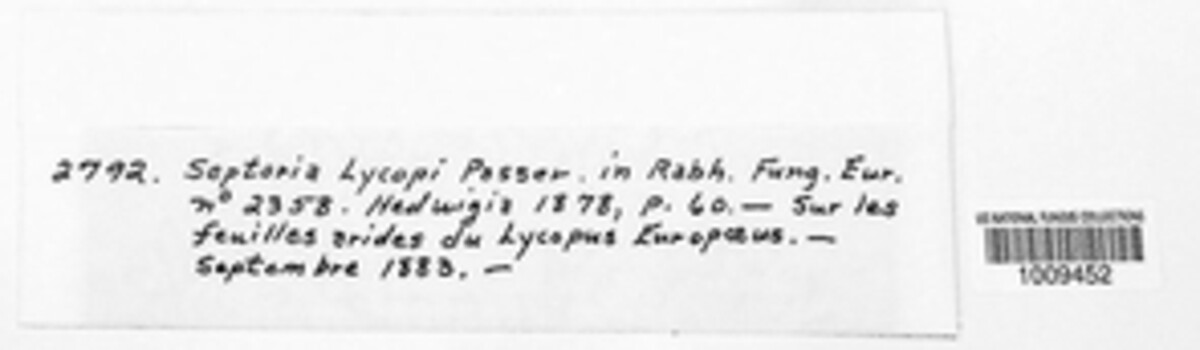 2792. Septoria Lycopi Passer. in Rabh. Fung. Eur.
nº 2358. Hedwigia 1878, p. 60. — Sur les
feuilles arides du Lycopus Europœus. —
Septembre 1883. —
US NATIONAL FUNGUS COLLECTIONS
1009452